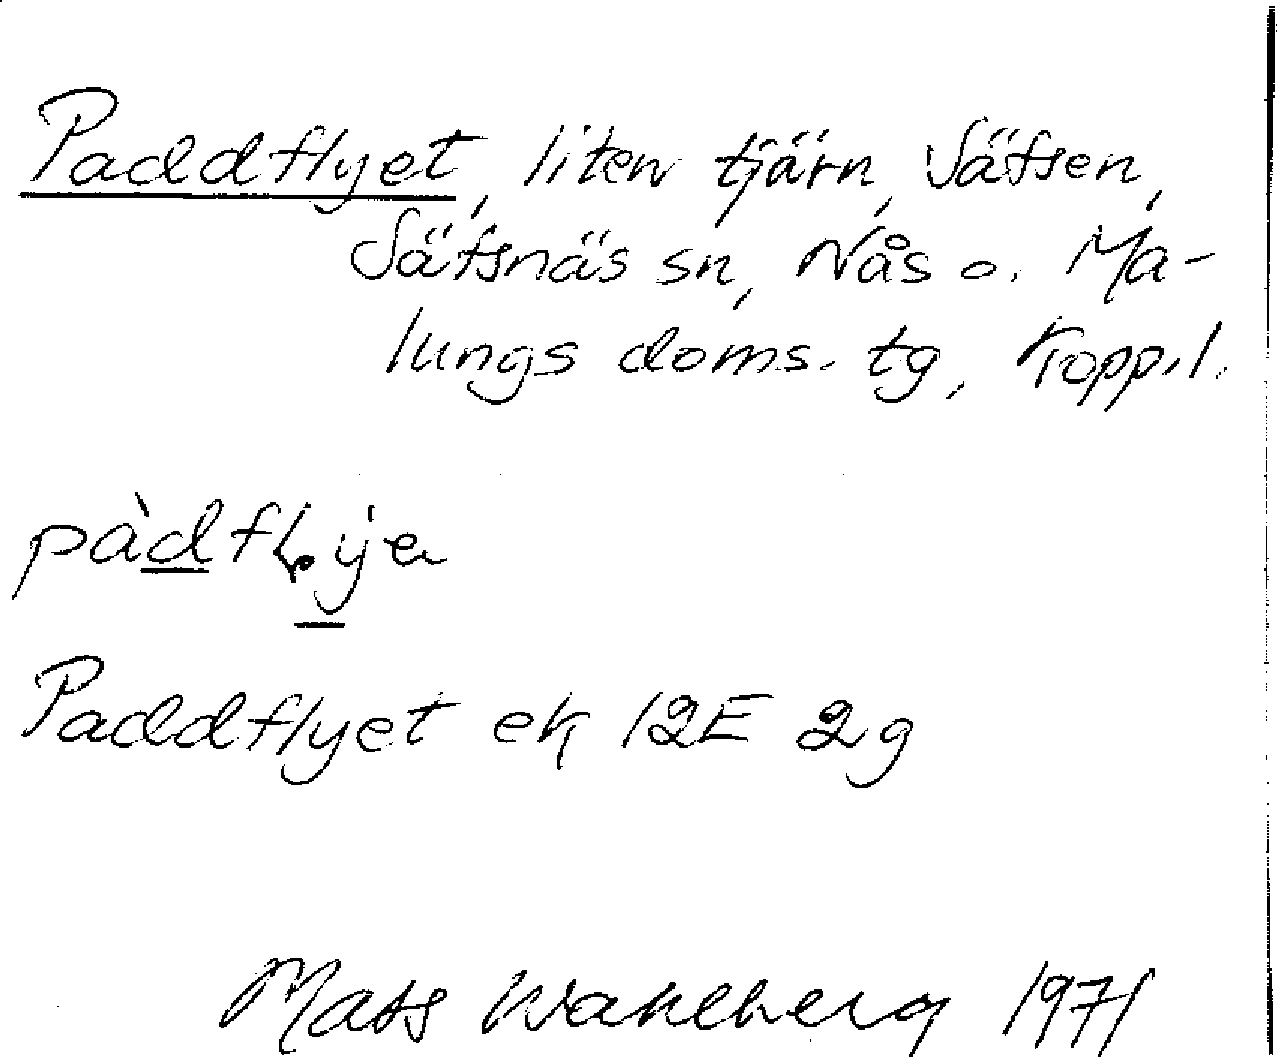 Paddflyet, liten tjärn, Säfsen,
Säfsnäs sn, Nås o. Ma-
lungs doms. tg, Kopp. l.
pàdflyje
Paddflyet ek 12E 2g
Mats Wahlberg 1971